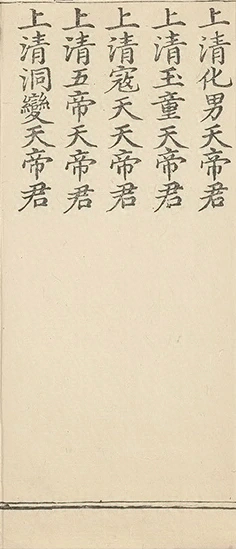 上清化男天帝君
上清玉童天帝君
上清寇天天帝君
上清五帝天帝君
上清洞變天帝君